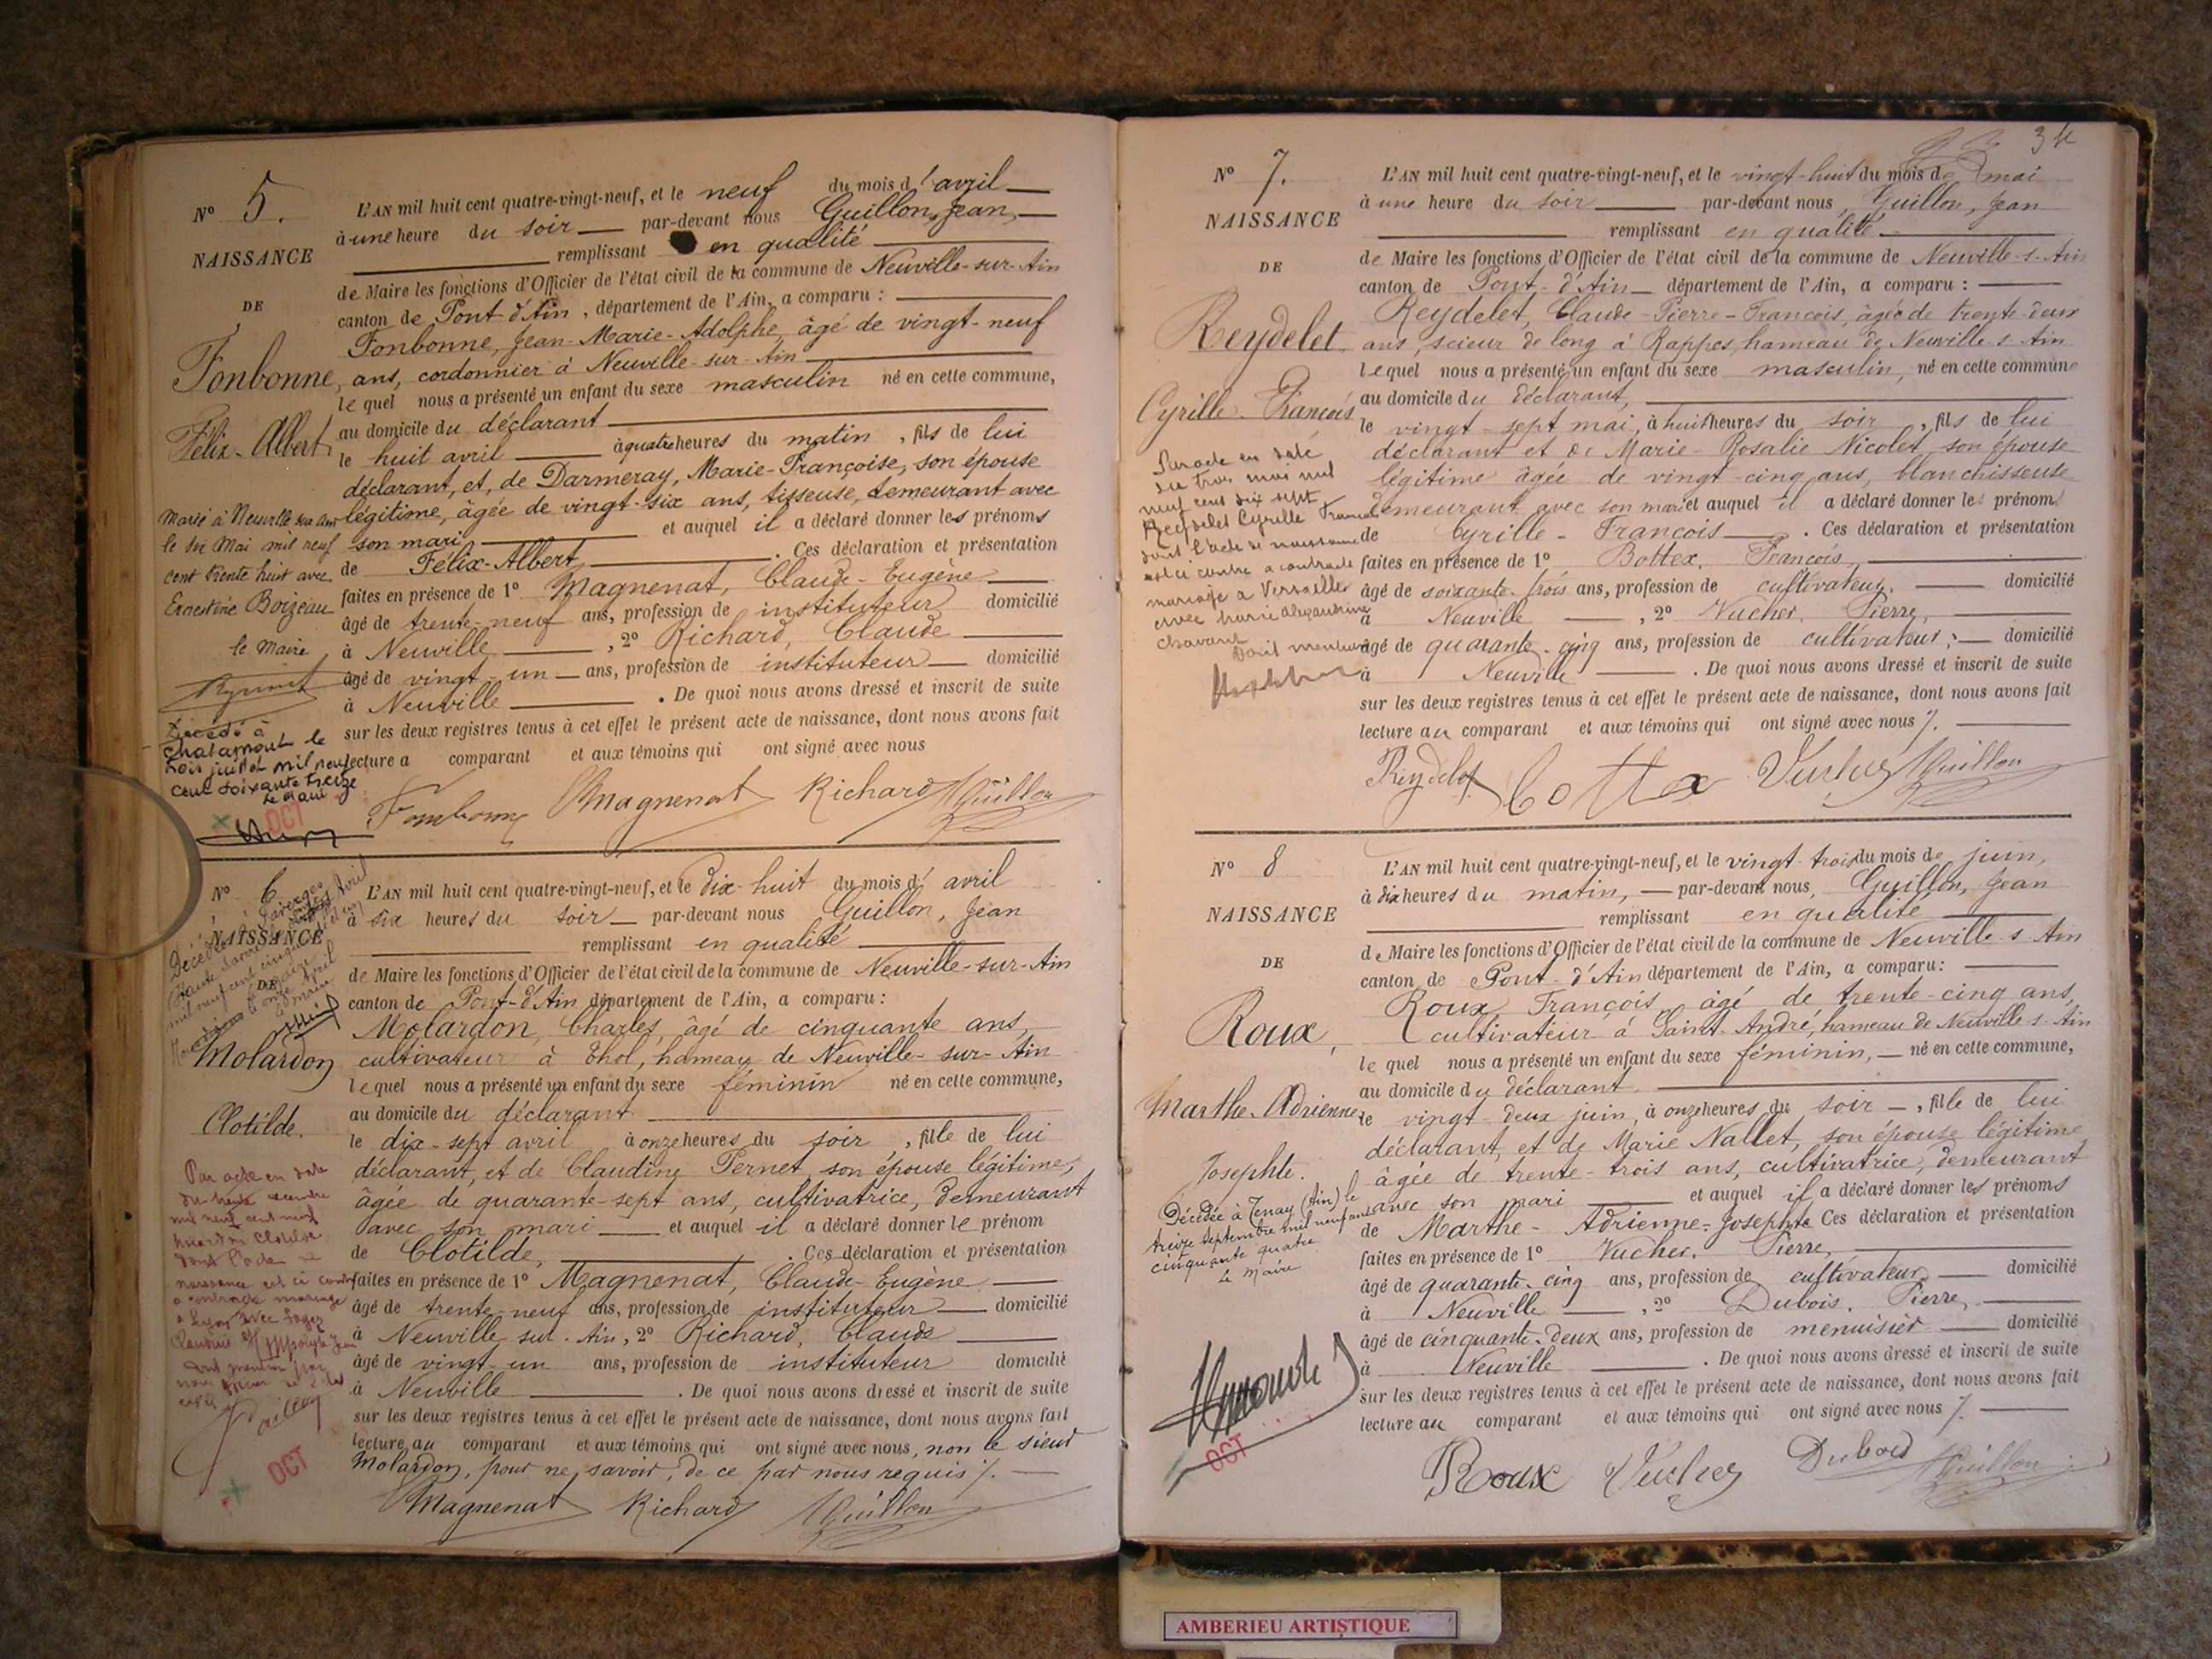 N° 5.
NAISSANCE
DE
Fonbonne,
Félix-Albert
Marié à Neuville sur Ain
le six Mai mil neuf
cent trente huit avec
Ernestine Boizeau
le Maire
Décédé à
Chalamont le
trois juillet mil neuf
cent soixante treize
Le Maire
OCT
L'AN mil huit cent quatre-vingt-neuf, et le neuf du mois d'avril
à une heure du soir par-devant nous Guillon, Jean,
remplissant en qualité
de Maire les fonctions d'Officier de l'état civil de la commune de Neuville-sur-Ain
canton de Pont-d'Ain, département de l'Ain, a comparu :
Fonbonne, Jean-Marie-Adolphe, âgé de vingt-neuf
ans, cordonnier à Neuville-sur-Ain
lequel nous a présenté un enfant du sexe masculin né en cette commune,
au domicile du déclarant
le huit avril à quatre heures du matin, fils de lui
déclarant, et, de Darmeray, Marie-Françoise, son épouse
légitime, âgée de vingt-six ans, tisseuse, demeurant avec
son mari, et auquel il a déclaré donner les prénoms
de Félix-Albert, . Ces déclaration et présentation
faites en présence de 1° Magnenat, Claude-Eugène
âgé de trente-neuf ans, profession de instituteur domicilié
à Neuville , 2° Richard, Claude
âgé de vingt-un ans, profession de instituteur domicilié
à Neuville . De quoi nous avons dressé et inscrit de suite
sur les deux registres tenus à cet effet le présent acte de naissance, dont nous avons fait
lecture a comparant et aux témoins qui ont signé avec nous
Fonbonne Magnenat Richard Guillon
N° 6
NAISSANCE
DE
Molardon
Clotilde.
Par acte en date
du
mil neuf cent neuf
Molardon Clotilde
dont l'acte de
naissance est ci contre
a contracté mariage
à Lyon avec
OCT
L'AN mil huit cent quatre-vingt-neuf, et le dix-huit du mois d'avril
à six heures du soir par-devant nous Guillon, Jean
remplissant en qualité
de Maire les fonctions d'Officier de l'état civil de la commune de Neuville-sur-Ain
canton de Pont-d'Ain département de l'Ain, a comparu :
Molardon, Charles, âgé de cinquante ans,
cultivateur à Thol, hameau de Neuville-sur-Ain
lequel nous a présenté un enfant du sexe féminin né en cette commune,
au domicile du déclarant
le dix-sept avril à onze heures du soir, fille de lui
déclarant, et de Claudine Pernet, son épouse légitime,
âgée de quarante-sept ans, cultivatrice, demeurant
avec son mari et auquel il a déclaré donner le prénom
de Clotilde, . Ces déclaration et présentation
faites en présence de 1° Magnenat, Claude-Eugène
âgé de trente-neuf ans, profession de instituteur domicilié
à Neuville sur-Ain, 2° Richard, Claude
âgé de vingt-un ans, profession de instituteur domicilié
à Neuville . De quoi nous avons dressé et inscrit de suite
sur les deux registres tenus à cet effet le présent acte de naissance, dont nous avons fait
lecture au comparant et aux témoins qui ont signé avec nous, non le sieur
Molardon, pour ne savoir, de ce par nous requis ./.
Magnenat Richard Guillon
34
N° 7.
NAISSANCE
DE
Reydelet,
Cyrille-François
Par acte en date
du trois mai mil
neuf cent dix sept
Reydelet Cyrille François
dont l'acte de naissance
est ci contre a contracté
mariage à Versailles
avec Marie Alexandrine
Chavant
Dont mention
L'AN mil huit cent quatre-vingt-neuf, et le vingt-huit du mois de mai
à une heure du soir par-devant nous, Guillon, Jean
remplissant en qualité
de Maire les fonctions d'Officier de l'état civil de la commune de Neuville-s-Ain
canton de Pont-d'Ain département de l'Ain, a comparu :
Reydelet, Claude-Pierre-François, âgé de trente-deux
ans, scieur de long à Rappes, hameau de Neuville s Ain
lequel nous a présenté un enfant du sexe masculin, né en cette commune
au domicile du déclarant,
le vingt-sept mai, à huit heures du soir, fils de lui
déclarant et de Marie-Rosalie Nicolet son épouse
légitime âgée de vingt-cinq ans, blanchisseuse
demeurant avec son mari et auquel il a déclaré donner les prénoms
de Cyrille-François . Ces déclaration et présentation
faites en présence de 1° Bottex, François,
âgé de soixante-trois ans, profession de cultivateur, domicilié
à Neuville , 2° Vucher, Pierre,
âgé de quarante-cinq ans, profession de cultivateur, domicilié
à Neuville . De quoi nous avons dressé et inscrit de suite
sur les deux registres tenus à cet effet le présent acte de naissance, dont nous avons fait
lecture au comparant et aux témoins qui ont signé avec nous ./.
Reydelet Bottex Vucher Guillon
N° 8
NAISSANCE
DE
Roux,
Marthe-Adrienne
Josephte.
Décédée à Tenay (Ain) le
treize septembre mil neuf cent
cinquante quatre
Le Maire
OCT
L'AN mil huit cent quatre-vingt-neuf, et le vingt-trois du mois de juin,
à dix heures du matin, par-devant nous, Guillon, Jean
remplissant en qualité
de Maire les fonctions d'Officier de l'état civil de la commune de Neuville s Ain
canton de Pont-d'Ain département de l'Ain, a comparu :
Roux, François, âgé de trente-cinq ans,
cultivateur à Saint-André, hameau de Neuville-s-Ain
lequel nous a présenté un enfant du sexe féminin, né en cette commune,
au domicile du déclarant.
le vingt-deux juin, à onze heures du soir, fille de lui
déclarant, et de Marie Nallet, son épouse légitime,
âgée de trente-trois ans, cultivatrice, demeurant
avec son mari et auquel il a déclaré donner les prénoms
de Marthe-Adrienne-Josephte Ces déclaration et présentation
faites en présence de 1° Vucher, Pierre,
âgé de quarante-cinq ans, profession de cultivateur, domicilié
à Neuville , 2° Dubois, Pierre,
âgé de cinquante-deux ans, profession de menuisier domicilié
à Neuville . De quoi nous avons dressé et inscrit de suite
sur les deux registres tenus à cet effet le présent acte de naissance, dont nous avons fait
lecture au comparant et aux témoins qui ont signé avec nous ./.
Roux Vucher Dubois Guillon
AMBERIEU ARTISTIQUE